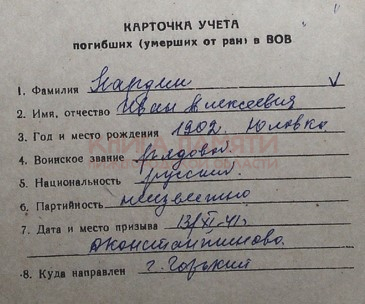 КАРТОЧКА УЧЕТА
погибших (умерших от ран) в ВОВ
1. Фамилия Кардин
2. Имя, отчество Иван Алексеевич
3. Год и место рождения 1902. Юловка
4. Воинское звание рядовой
5. Национальность русский
6. Партийность неизвестно
7. Дата и место призыва 13/XI-41г.
Д Константиново.
8. Куда направлен г. Горький
КНИГА ПАМЯТИ